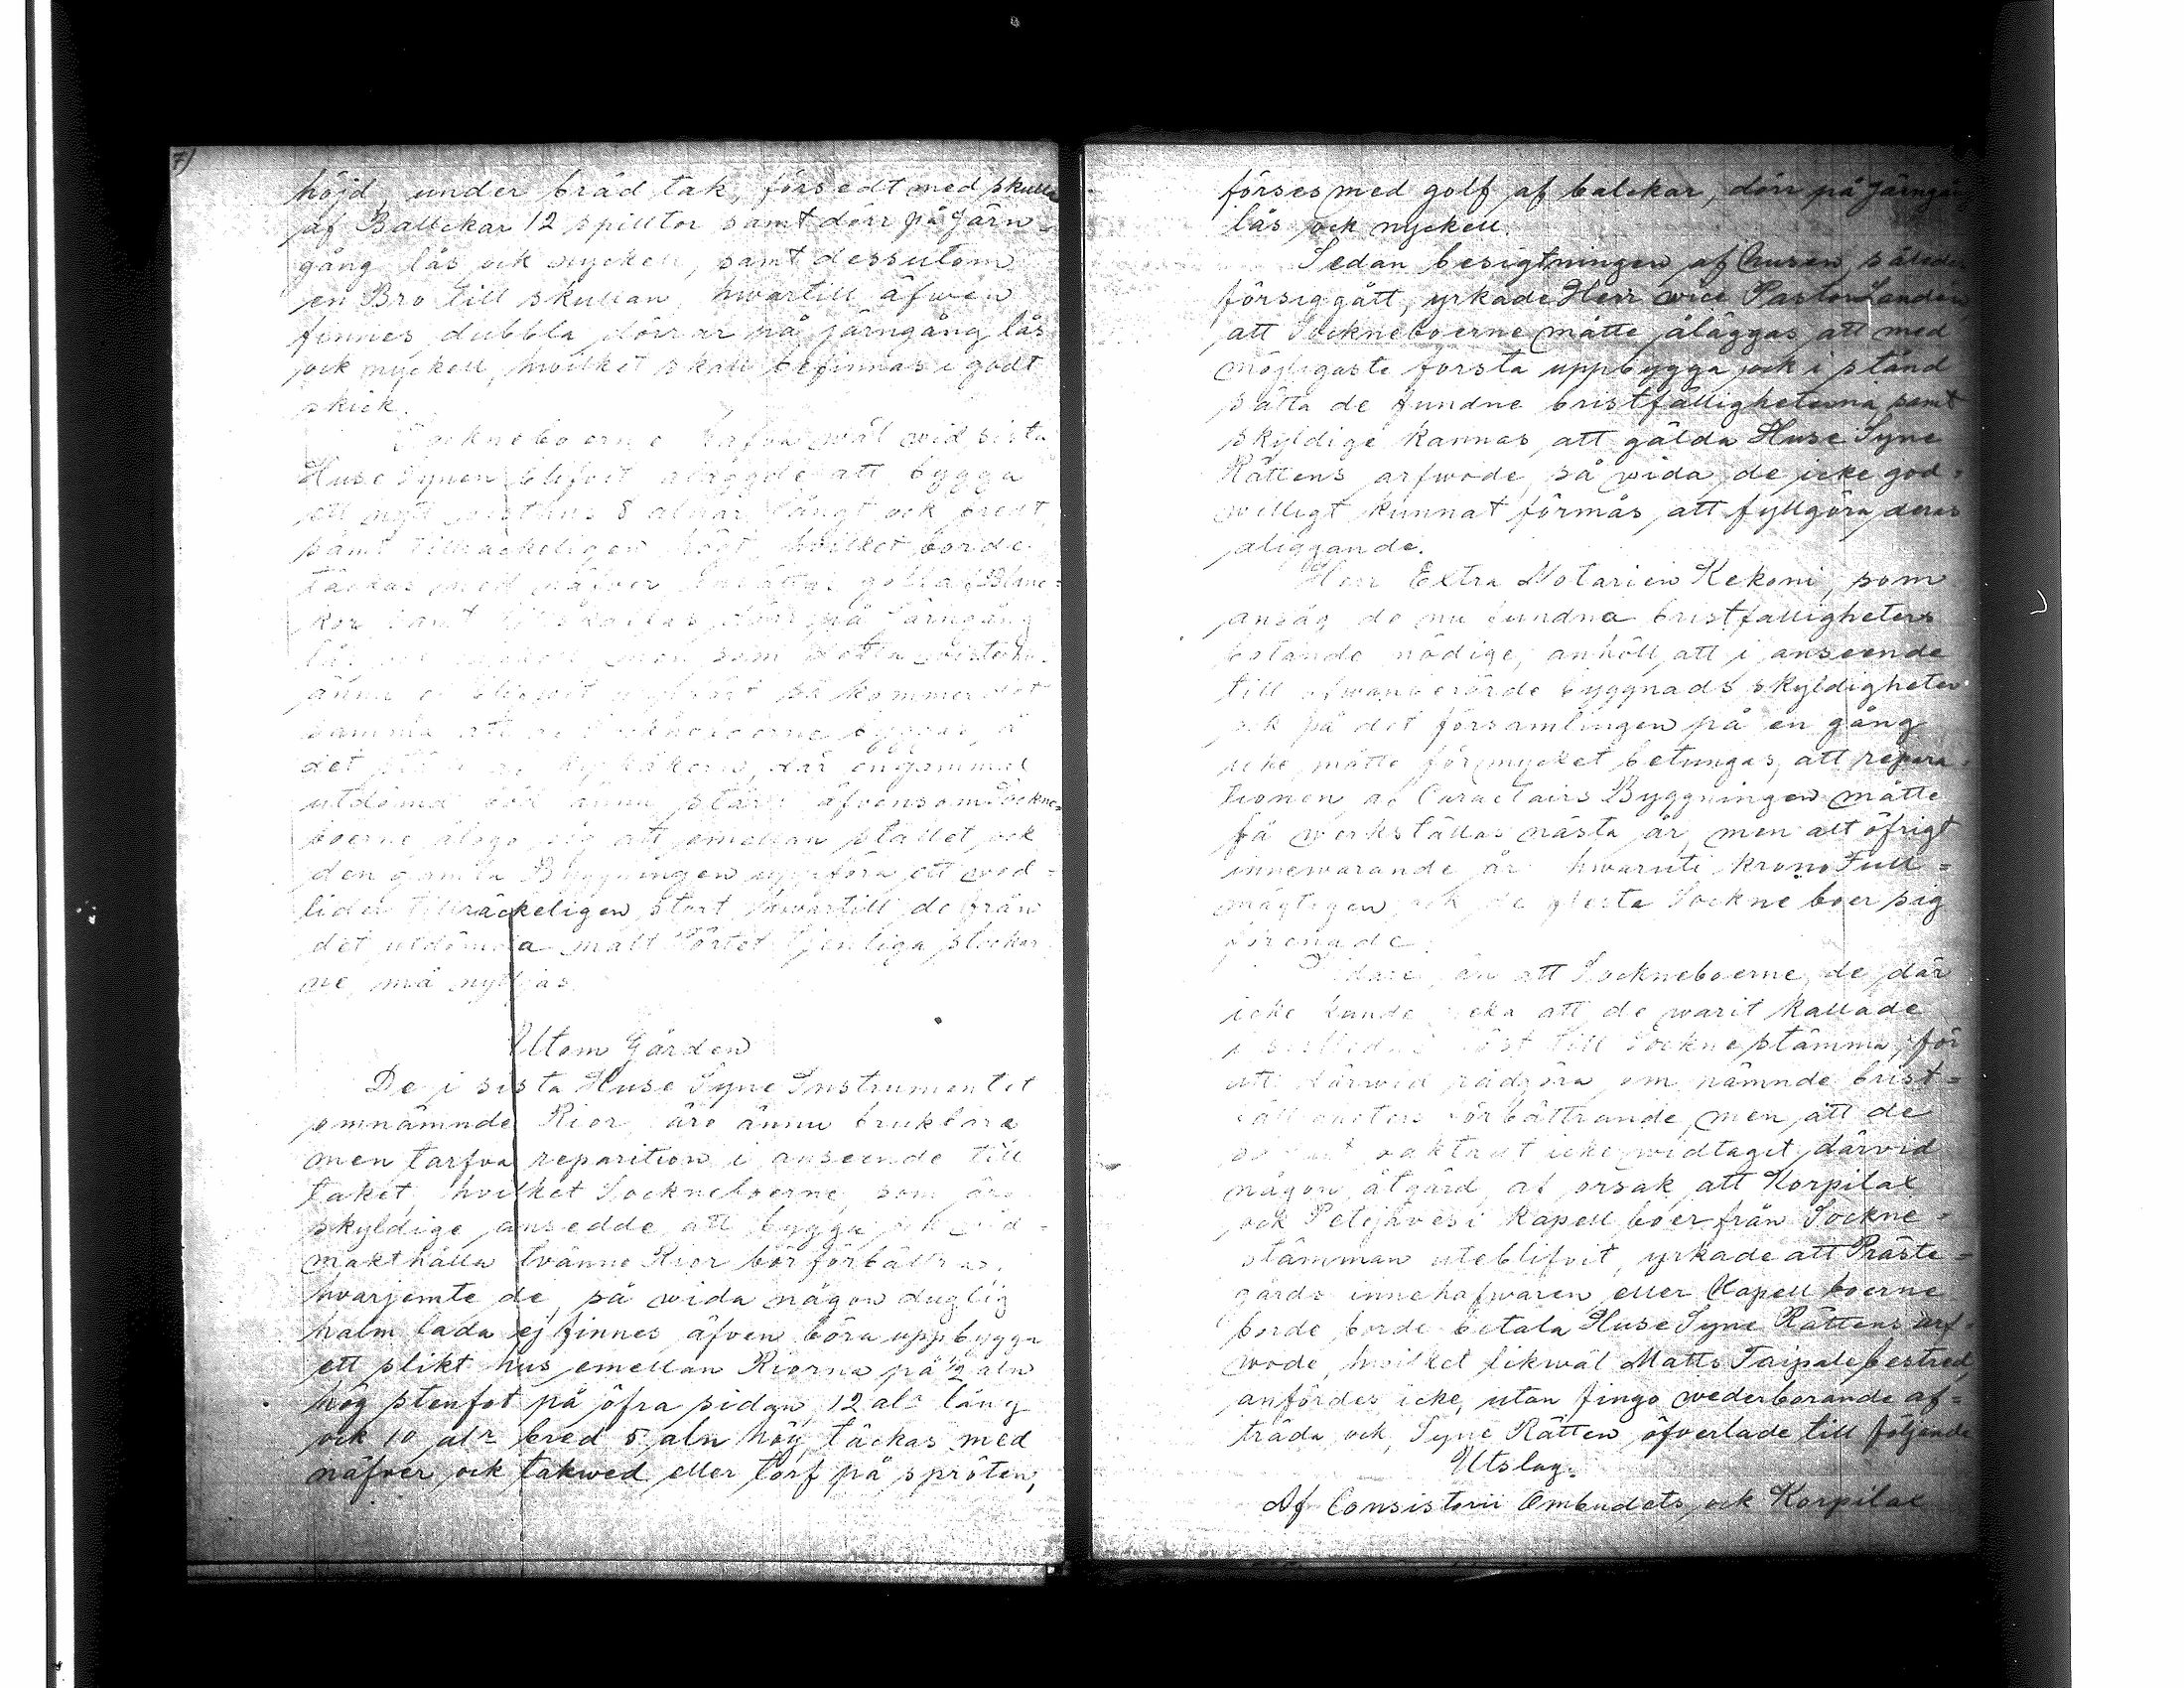 7)
höjd, under bräd tak, försedt med skulla
af Ballckar 12 spilltor samt dörr på järn-
gång lås ock nyckell, samt dessutom
en Bro till skullan hwartill äfwen
finnes dubbla dörrar på järngång lås
ock nyckell, hwilket skall befinnas i godt
skick.
Sockneboerne hafva wäl wid sista
Huse Synen blifvit ålaggde att bygga
ett nytt 8 alnar långt ock bredt
samt tillräckeligen högt, hvilket borde
täckas med näfver golf af Blanc-
kor samt dörr på Järngång
lås ock nyckell, men som detta
ännu ej blifwit uppfört så kommer det
samma att af Sockneboerne byggas, å
det där en gammal
utdömd bod ännu står, äfvensom Sockne-
boerne åtogo sig att emellan stallet ock
den gamla Byggningen uppföra ett wed-
lider tillräckeligen stort, hwartill de från
det utdömda malt Törtet tjenliga stockar
ne må nyttjas.
Utom Gården
De i sista Huse Syne Instrumentet
omnämnde Rior, äro ännu brukbara
men tarfva reparition i anseende till
taket, hvilket Sockneboerne, som äro
skyldige ansedde att bygga ock vid-
makthålla tvänne Rior bör förbättras.
hvarjemte de, så wida någon duglig
halm lada ej finnes äfven böra uppbygga
ett slikt hus emellan Riorna på ½ aln
hög stenfot på öfra sidan, 12 alr lång
ock 10 alr bred 5 aln hög, täckas med
näfver ock takwed eller torf på spröten,
förses med golf af balckar, dörr på järngång
lås ock nyckell.
Sedan besigtningen af husen, således
försiggått, yrkade Herr wice Pastor Landen
att Sockneboerne måtte åläggas att med
möjligaste forsta uppbygga ock i stånd
sätta de fundne bristfälligheterna, samt
skyldige kännas, att gälda Huse Syne
Rättens arfwode, så wida de icke god-
willigt kunnat förmås att fyllgöra deras
åliggande.
Herr Extra Notarien Kekoni, som
ansåg de nu fundna bristfälligheters
botande nödige, anhöll att i anseende
till ofwanberörde byggnads skyldigheter
ock på det församlingen på en gång
icke måtte för mycket betungas, att repera-
tionen af Caractairs Byggningen måtte
få werkställas nästa år, men allt öfrigt
innewarande år hwaruti krono Full-
mägtigen ock de flesta Sockne boer sig
förenade.
än att Sockneboerne, de där
icke kunde neka att de warit kallade
höst till Sockne stämma, för
att därwid rådgöra om nämnde brist-
förbättrande, men att de
oaktadt icke widtagit därvid
någon åtgärd, af orsak att Korpilax
ock Petejärvesi Kapell boer från Sockne-
stämman uteblifvit, yrkade att Präste-
gårds innehafwaren eller Kapell boerne
borde borde betala Huse Syne Rättens arf-
wode, hvilket likwäl Matts Taipale bestred,
anfördes icke, utan fingo wederborande af-
träda ock Syne Rätten öfverlade till följande
Utslag.
Af Consistorii Ombudets ock Korpilax